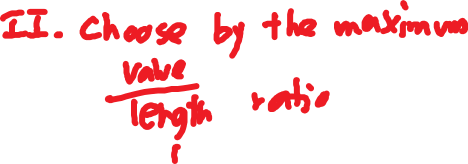 II. Choose by the maximum
value
length ratio